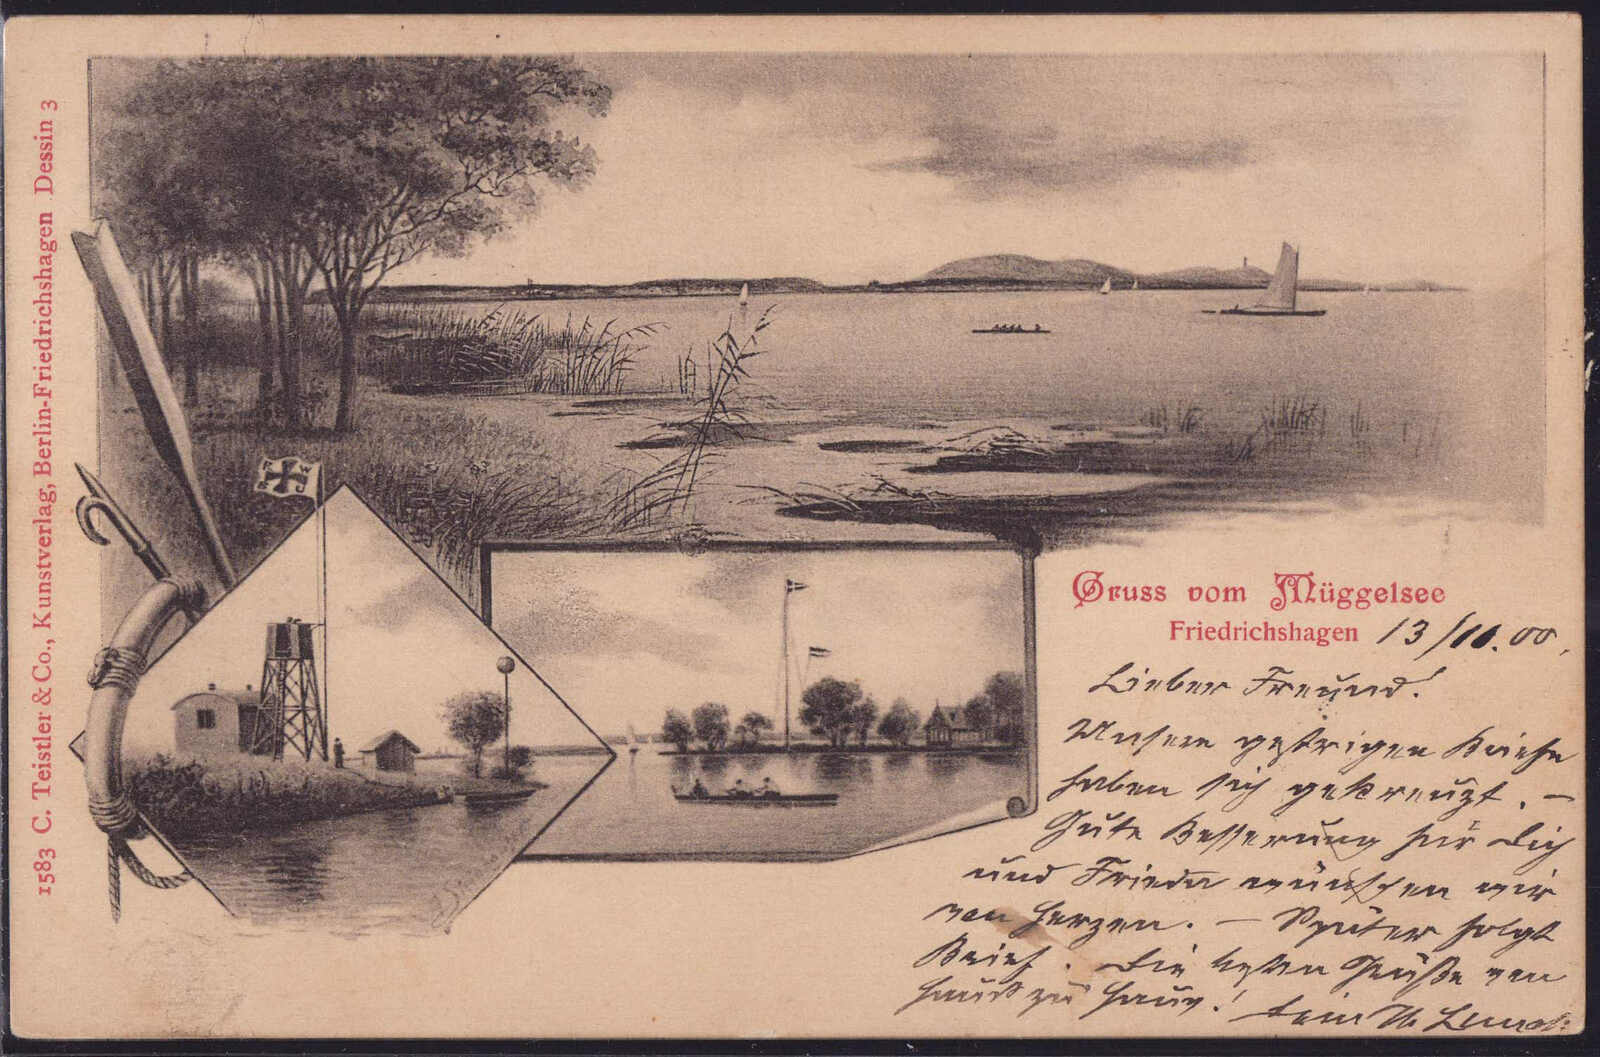 1583 C. Teistler & Co., Kunstverlag, Berlin-Friedrichshagen Dessin 3
Gruss vom Müggelsee
Friedrichshagen 13/10.00.
Lieber Freund!
Unsere gestrigen Briefe
haben sich gekreuzt. –
Gute Besserung für Dich
und Frieda wünschen wir
von Herzen. – Später folgt
Brief. Die besten Grüße von
Haus zu Haus! Dein Th.